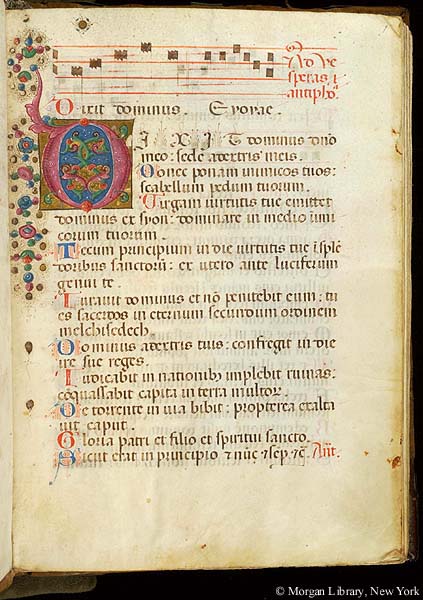 Ad ve
speras a
antipho
Dixit dominus. Evovae.
DIXIT dominus dno
meo: sede adextris meis.
Donec ponam inimicos tuos:
scabellum pedum tuorum.
Virgam virtutis tue emittet
dominus ex syon: dominare in medio inimi
corum tuorum.
Tecum principium in die virtutis tue i splē
doribus sanctorū: ex utero ante luciferum
genui te.
Iuravit dominus et nō penitebit eum: tu
es sacerdos in eternum secundum ordinem
melchisedech.
Dominus adextris tuis: confregit in die
ire sue reges.
Iudicabit in nationibꝫ implebit ruinas:
cōquassabit capita in terra multoꝝ.
De torrente in via bibit: propterea exalta
vit caput.
Gloria patri et filio et spiritui sancto.
Sicut erat in principio ⁊ nūc ⁊ sep. ⁊c̄ Ant.
© Morgan Library, New York